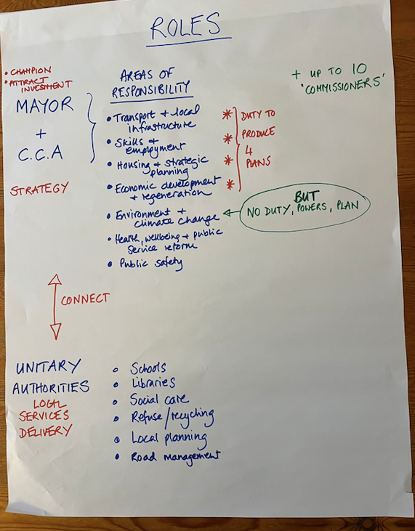 ROLES
• CHAMPION
• ATTRACT
INVESTMENT
MAYOR
+
C.C.A
STRATEGY
AREAS OF
RESPONSIBILITY
• Transport + local
infrastructure
• Skills +
employment
• Housing + strategic
planning
• Economic development
+ regeneration
• Environment +
climate change
• Health, wellbeing + public
Service reform
• Public safety
* * * *
DUTY TO
PRODUCE
4
PLANS
+ UP TO 10
'COMMISSIONERS'
BUT
NO DUTY, POWERS, PLAN
CONNECT
UNITARY
AUTHORITIES
LOCAL
SERVICES
DELIVERY
• Schools
• Libraries
• Social care
• Refuse/recycling
• Local planning
• Road management